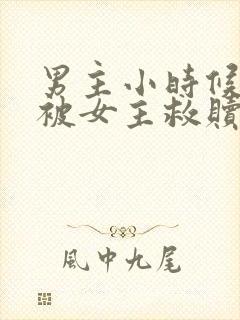 男主小時候
被女主救贖
風中九尾